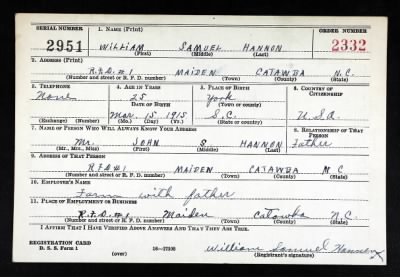 SERIAL NUMBER 1. NAME (Print) ORDER NUMBER
2951 WILLIAM SAMUEL HANNON 2332
(First) (Middle) (Last)
2. ADDRESS (Print)
R.F.D. #1 MAIDEN CATAWBA N.C.
(Number and street or R. F. D. number) (Town) (County) (State)
3. TELEPHONE 4. AGE IN YEARS 5. PLACE OF BIRTH 6. COUNTRY OF CITIZENSHIP
None 25 York
DATE OF BIRTH (Town or county)
Mar. 15 1915 S.C. U.S.A.
(Exchange) (No.) (Mo.) (Day) (Yr.) (State or country)
7. NAME OF PERSON WHO WILL ALWAYS KNOW YOUR ADDRESS 8. RELATIONSHIP OF THAT PERSON
Mr. JOHN S HANNON Father
(Mr., Mrs., Miss) (First) (Middle) (Last)
9. ADDRESS OF THAT PERSON
R.F.D #1 MAIDEN CATAWBA N C
(Number and street or R. F. D. number) (Town) (County) (State)
10. EMPLOYER'S NAME
Farm with father
11. PLACE OF EMPLOYMENT OR BUSINESS
R.F.D. #1. Maiden Catawba N.C.
(Number and street or R. F. D. number) (Town) (County) (State)
I AFFIRM THAT I HAVE VERIFIED ABOVE ANSWERS AND THAT THEY ARE TRUE.
REGISTRATION CARD
D. S. S. Form 1 (over) 16—17105 William Samuel Hannon
(Registrant's signature)